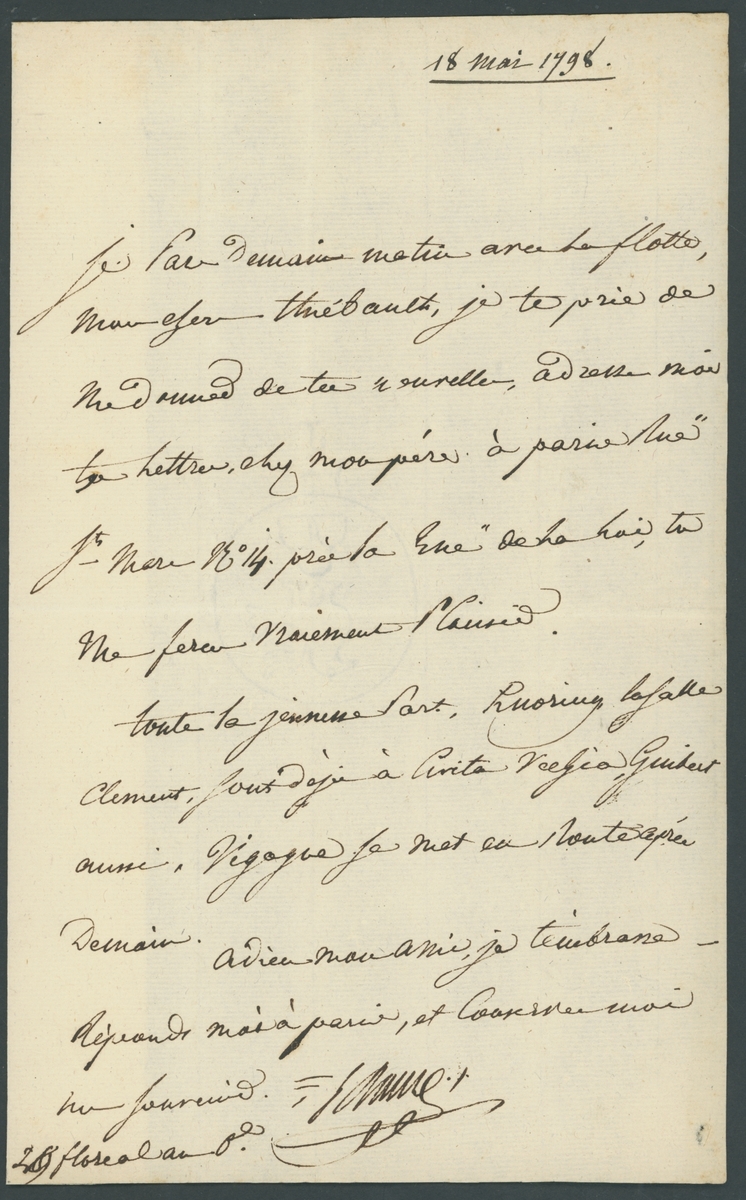 18 mai 1798.
je Pars Demain matin avec la flotte,
mon cher thiébault, je te prie de
me donner de tes nouvelles, adresse moi
ta Lettre, chez mon père à paris Rue
St. Marc No 14. près la Rue de la Loi, tu
me feras vraiement Plaisir.
toute la jeunesse Part, Lasalle
Clement, sont déjà à Civita Vechia, Guibert
aussi, Vigogne se met en Route après
Demain. adieu mon ami, je t'embrasse
Réponds moi à paris, et Conserve moi
un souvenir.
29 floreal an 6e.